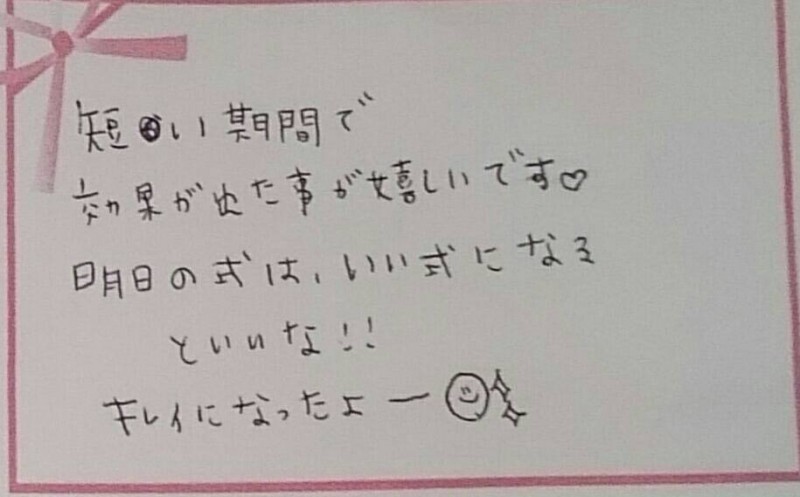 短い期間で
効果が出た事が嬉しいです♡
明日の式は、いい式になる
といいな!!
キレイになったよー